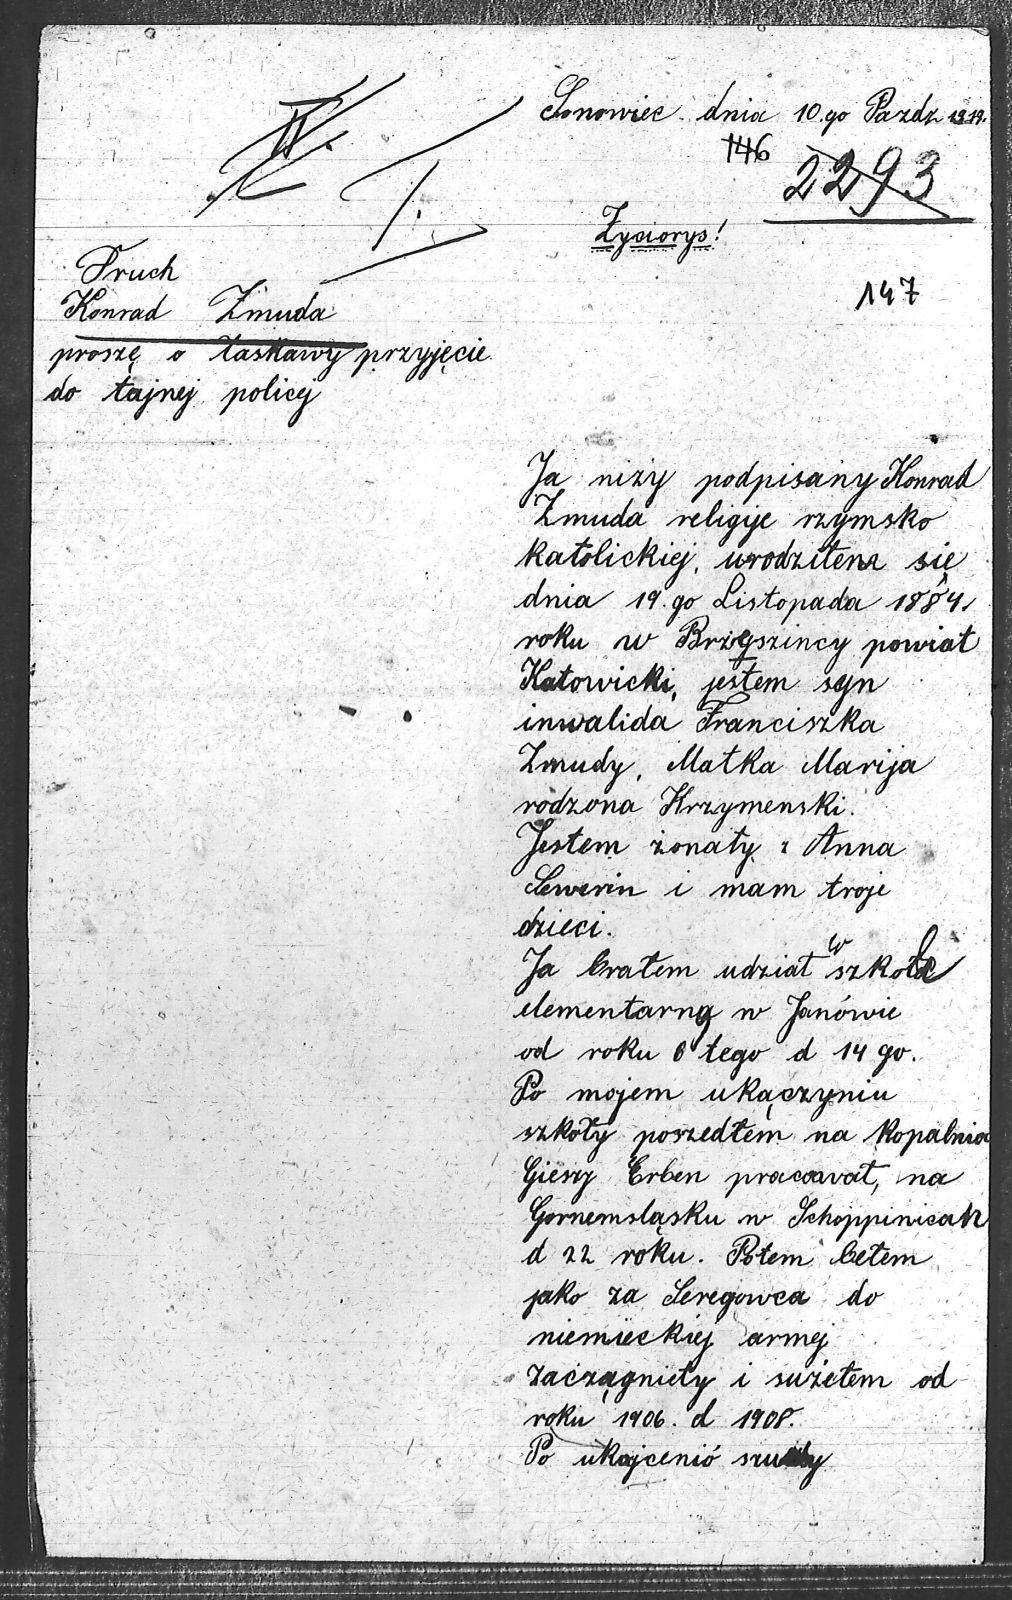 Sonowiec dnia 10.go Pazdz 1919.
146
2293
Zyciorys!
147
Druch
Konrad Zmuda
proszę o łaskawy przyjęcie
do tajnej policej
Ja niży podpisany Konrad
Zmuda religije rzymsko
katolickiej, urodziłem się
dnia 19.go Listopada 1884
roku w Brzęszincy powiat
Katowicki, jestem syn
inwalida Franciszka
Zmudy, Matka Marija
rodzona Krzymenski.
Jestem żonaty z Anna
Sewerin i mam troje
dzieci.
Ja brałem udział w szkole
elementarną w Janówie
od roku 6 tego d 14 go.
Po mojem ukączyniu
szkoły poszedłem na kopalnia
Giesz Erben pracowat, na
Gornemsląsku w Schoppinicah
d 22 roku. Potem bełem
jako za Seregowca do
niemieckiej armej
zaczągniety i sużełem od
roku 1906. d 1908.
Po ukojcenió